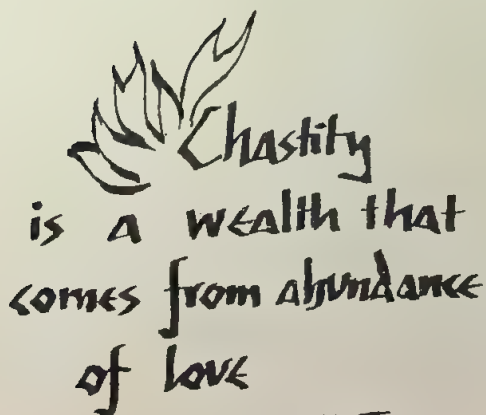 Chastity
is a wealth that
comes from abundance
of love